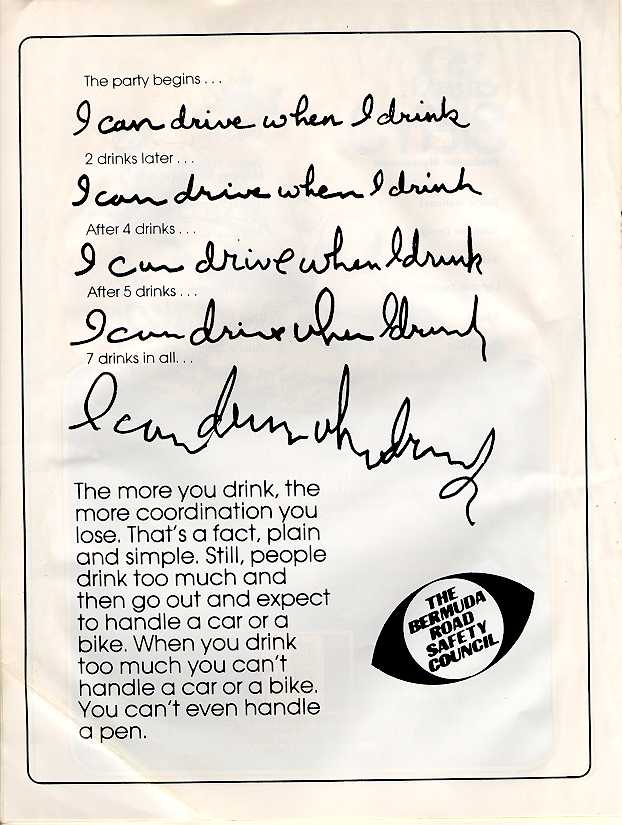 The party begins . . .
I can drive when I drink
2 drinks later . . .
I can drive when I drink
After 4 drinks . . .
I can drive when I drink
After 5 drinks . . .
I can drive when I drink
7 drinks in all. . .
I can
The more you drink, the
more coordination you
lose. That's a fact, plain
and simple. Still, people
drink too much and
then go out and expect
to handle a car or a
bike. When you drink
too much you can't
handle a car or a bike.
You can't even handle
a pen.
THE
BERMUDA
ROAD
SAFETY
COUNCIL